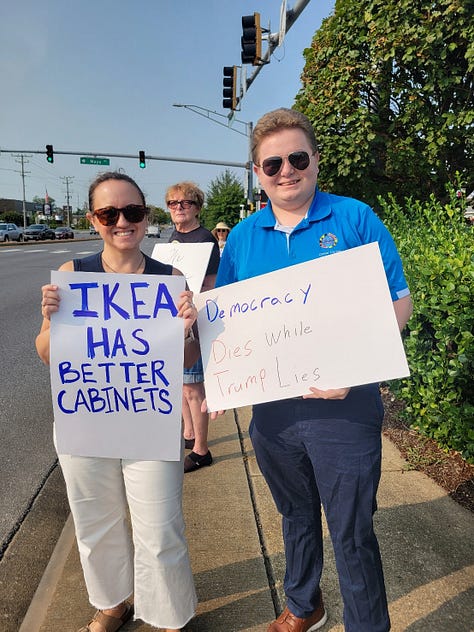 IKEA
HAS
BETTER
CABINETS
Democracy
Dies While
Trump Lies